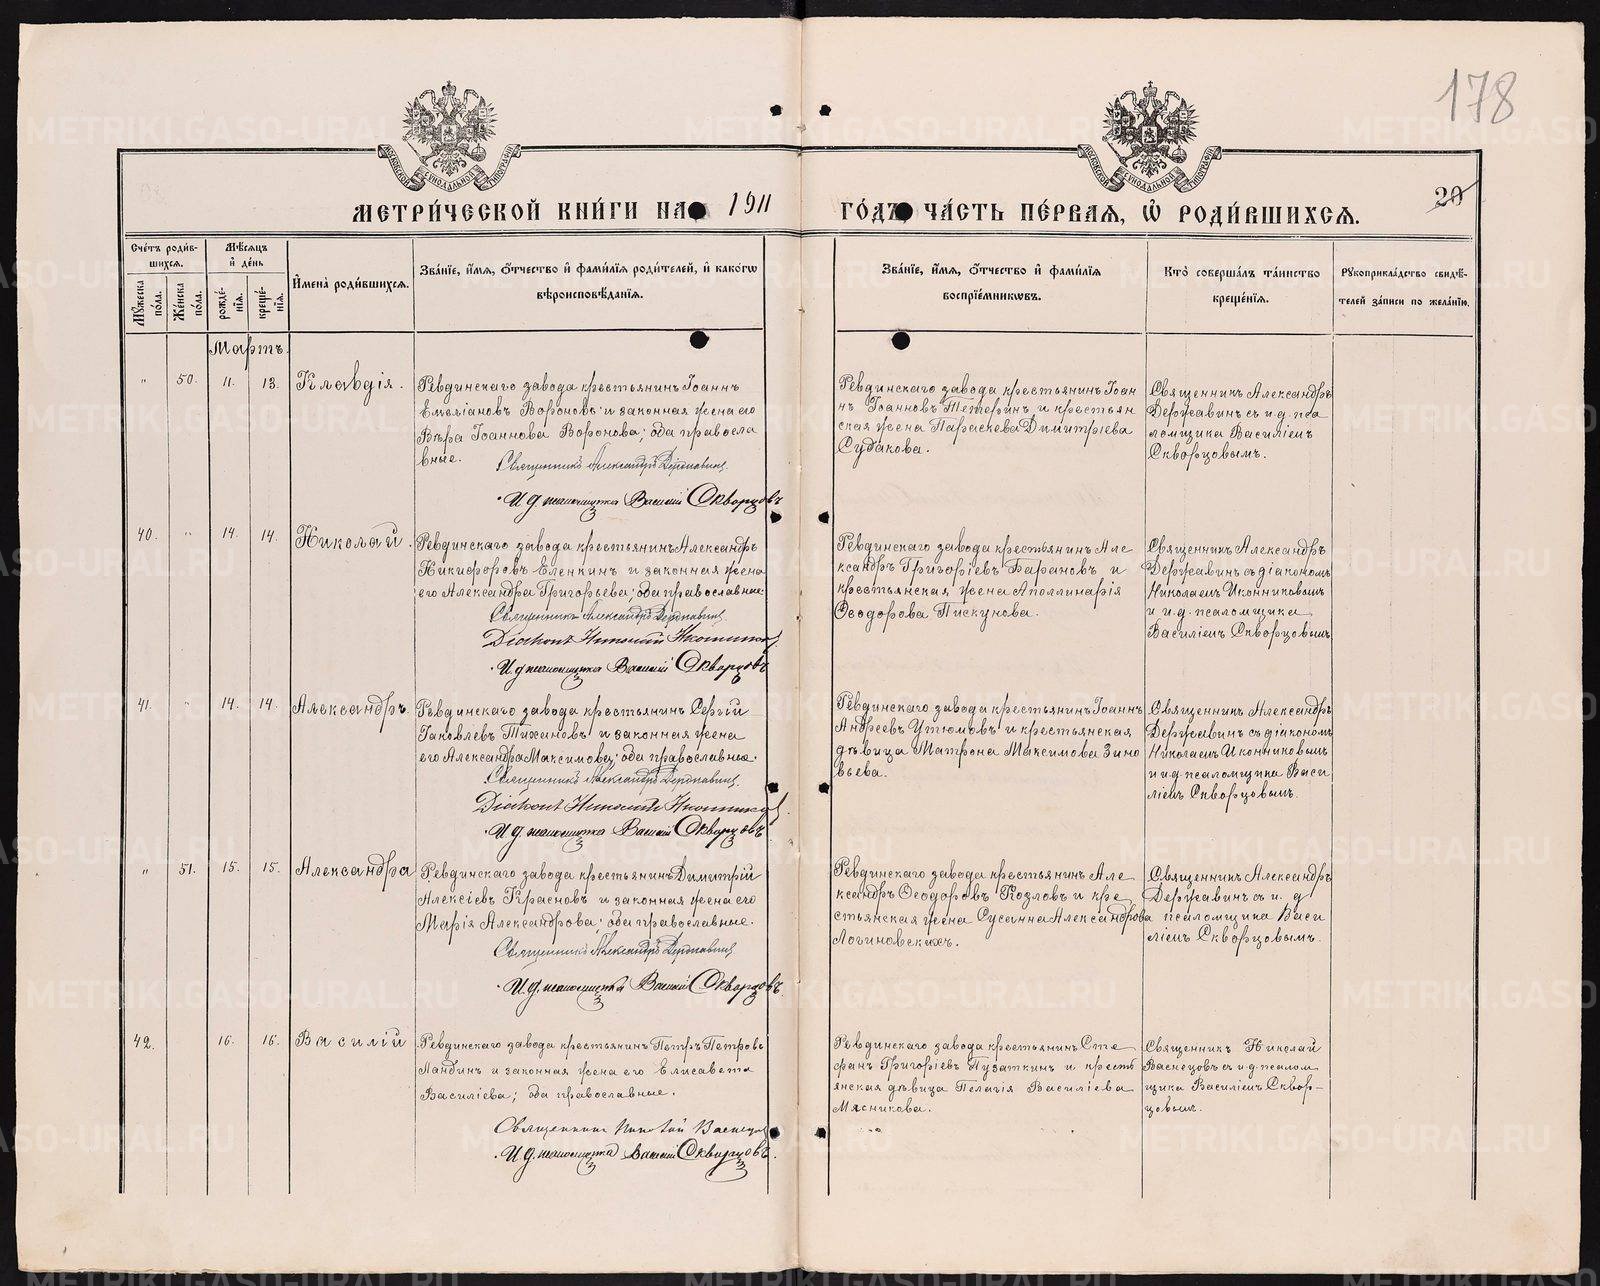 178
20
МЕТРИ́ЧЕСКОЙ КНИ́ГИ НА 1911 ГО́ДЪ ЧА́СТЬ ПЕ́РВАЯ, Ѽ РОДИ́ВШИХСЯ.
Сче́тъ роди́в-
шихся.
Му́жеска по́ла.
Же́нска по́ла.
Мѣ́сяцъ
и҆ де́нь
рожде́-
нїя.
креще́-
нїя.
И҆мена̀ роди́вшихся.
Зва́нїе, и҆́мя, ѻ҆́тчество и҆ фами́лїя роди́телей, и҆ како́гѡ
вѣроисповѣ́данїя.
Зва́нїе, и҆́мя, ѻ҆́тчество и҆ фами́лїя
воспрїе́мникѡвъ.
Кто̀ соверша́лъ та́инство
креще́нїя.
Рꙋкоприкла́дство свидѣ́-
телей за́писи по жела́нїю.
Мартъ.
" 50. 11. 13. Клавдія.
Ревдинскаго завода крестьянинъ Іоаннъ
Емеліановъ Вороновъ и законная жена его
Вѣра Іоаннова Воронова; оба правосла
вные.
Священникъ Александръ Державинъ
И. д. псаломщика Василій Скворцовъ
Ревдинскаго завода крестьянинъ Іоан
нъ Іоанновъ Тетеринъ и крестьян
ская жена Параскева Димитріева
Судакова.
Священникъ Александръ
Державинъ съ и. д. пса
ломщика Василіемъ
Скворцовымъ.
40. " 14. 14. Николай.
Ревдинскаго завода крестьянинъ Александръ
Никифоровъ Еленкинъ и законная жена
его Александра Григорьева; оба православные.
Священникъ Александръ Державинъ
Діаконъ Николай Иконниковъ
И. д. псаломщика Василій Скворцовъ
Ревдинскаго завода крестьянинъ Але
ксандръ Григоріевъ Барановъ и
крестьянская жена Аполлинарія
Ѳеодорова Пискунова.
Священникъ Александръ
Державинъ съ діакономъ
Николаемъ Иконниковымъ
и и.д. псаломщика
Василіемъ Скворцовымъ
41. " 14. 14. Александръ.
Ревдинскаго завода крестьянинъ Сергій
Іаковлевъ Тихановъ и законная жена
его Александра Максимова; оба православные.
Священникъ Александръ Державинъ
Діаконъ Николай Иконниковъ
И. д. псаломщика Василій Скворцовъ
Ревдинскаго завода крестьянинъ Іоаннъ
Андреевъ Утюмовъ и крестьянская
дѣвица Матрона Максимова Зино
вьева.
Священникъ Александръ
Державинъ съ діакономъ
Николаемъ Иконниковымъ
и и.д. псаломщика Васи
ліемъ Скворцовымъ.
" 51. 15. 15. Александра
Ревдинскаго завода крестьянинъ Димитрій
Алексіевъ Красновъ и законная жена его
Марія Александрова; оба православные.
Священникъ Александръ Державинъ
И. д. псаломщика Василій Скворцовъ
Ревдинскаго завода крестьянинъ Але
ксандръ Ѳеодоровъ Козловъ и кре
стьянская жена Сусанна Александрова
Логиновскихъ.
Священникъ Александръ
Державинъ съ и. д
псаломщика Васи
ліемъ Скворцовымъ.
42. 16. 16. Василій
Ревдинскаго завода крестьянинъ Петръ Петровъ
Ландинъ и законная жена его Елисавета
Василіева; оба православные.
Священникъ Николай Васнецовъ
И. д. псаломщика Василій Скворцовъ
Ревдинскаго завода крестьянинъ Сте
фанъ Григоріевъ Пузаткинъ и кресть
янская дѣвица Пелагія Василіева
Мясникова.
Священникъ Николай
Васнецовъ съ и.д. псалом
щика Василіемъ Сквор-
цовымъ.
METRIKI.GASO-URAL.RU